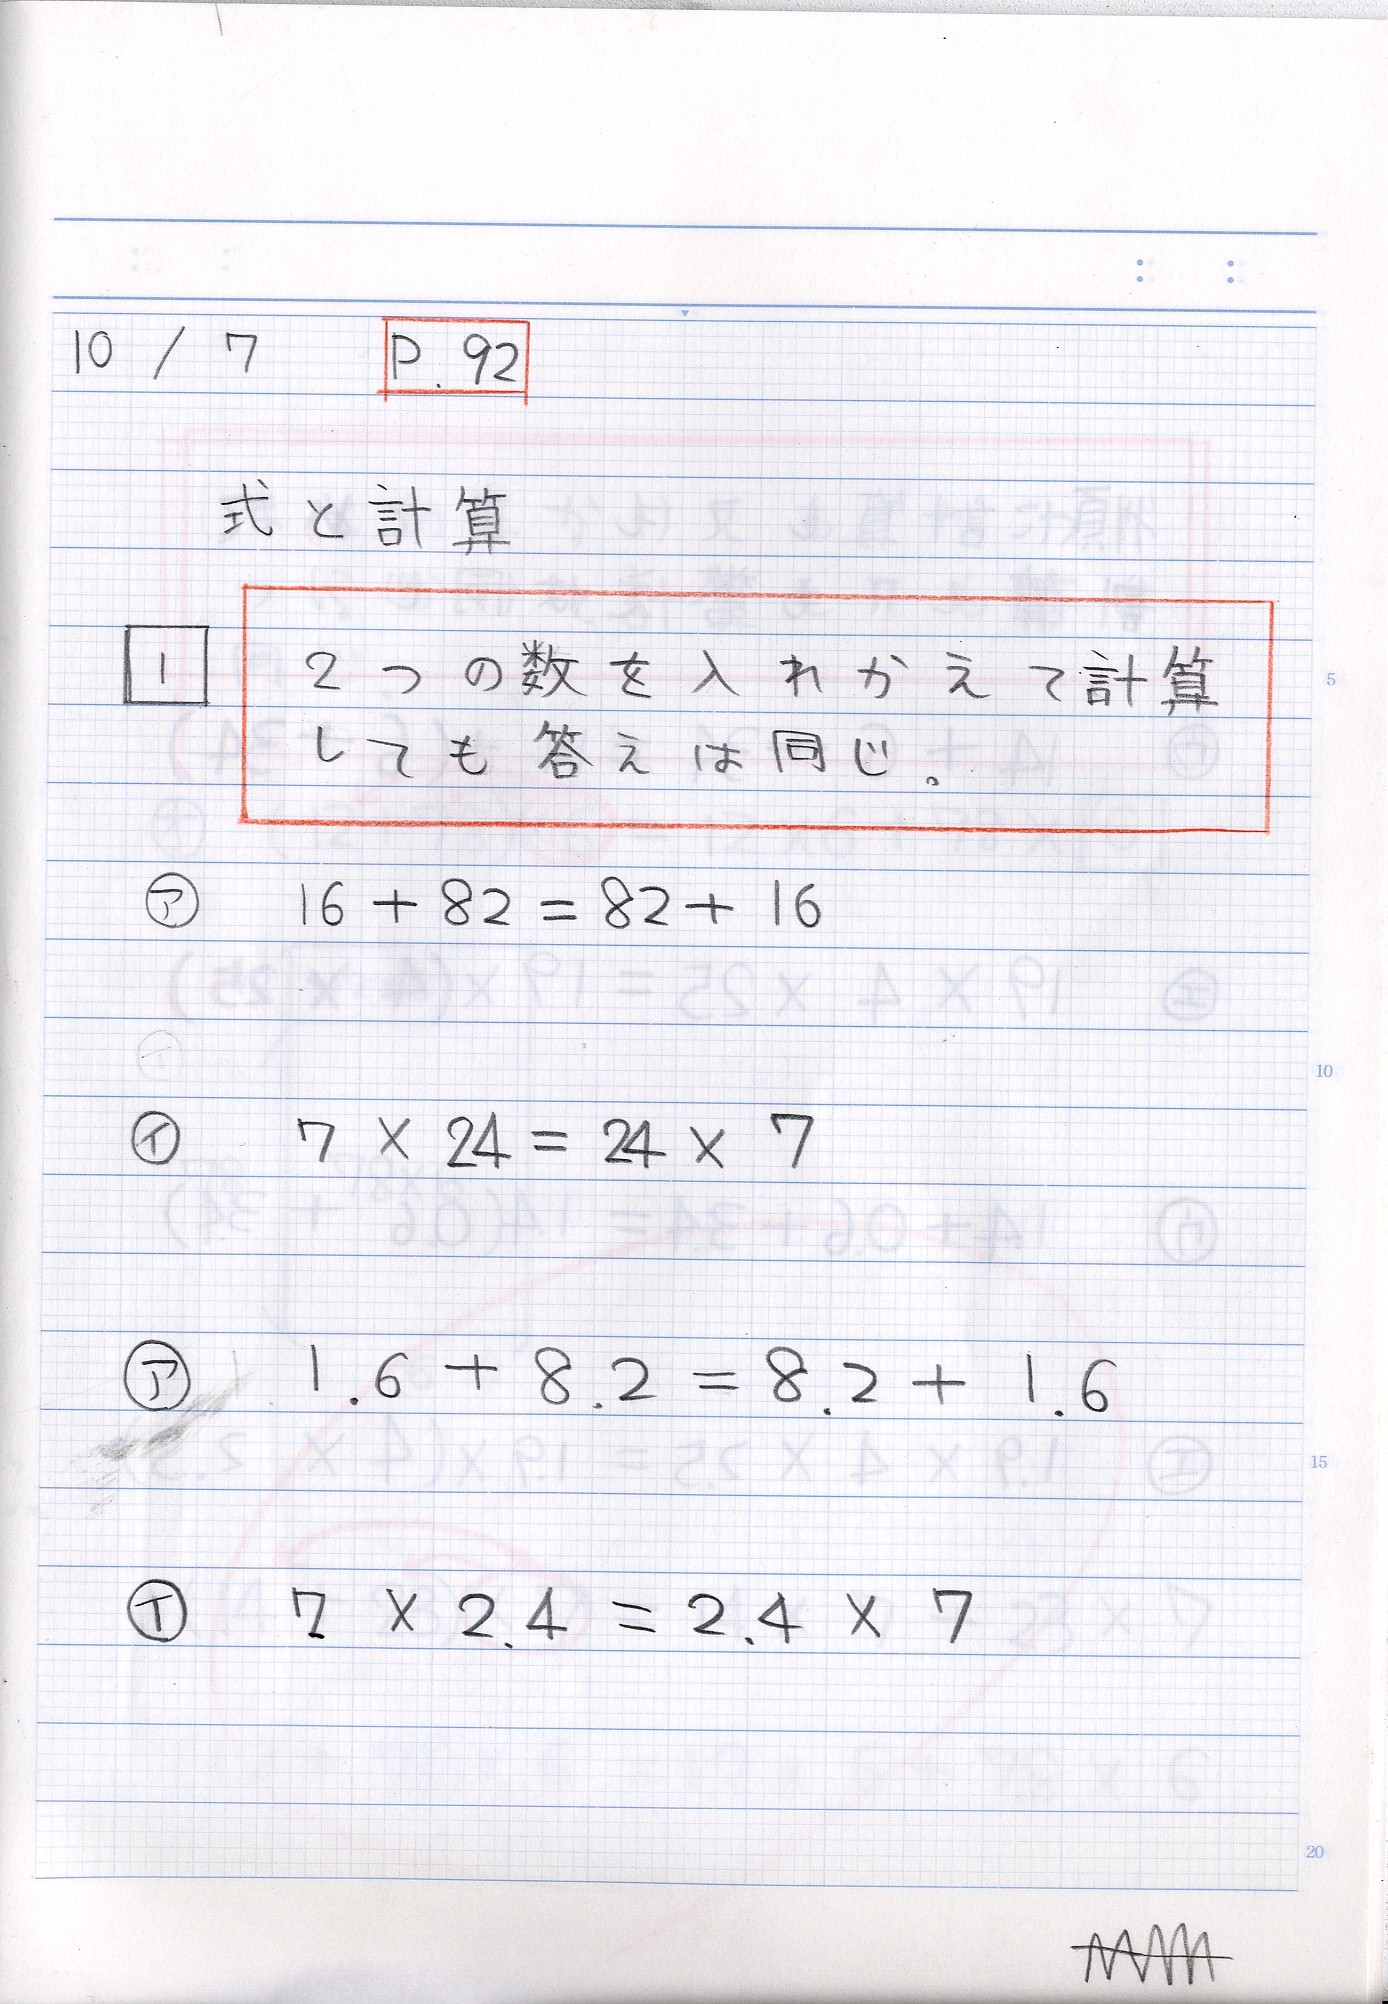 10 / 7 P. 92
式と計算
1 2つの数を入れかえて計算
しても答えは同じ。
5
㋐ 16 + 82 = 82 + 16
10
㋑ 7 × 24 = 24 × 7
㋐ 1.6 + 8.2 = 8.2 + 1.6
15
㋑ 7 × 2.4 = 2.4 × 7
20